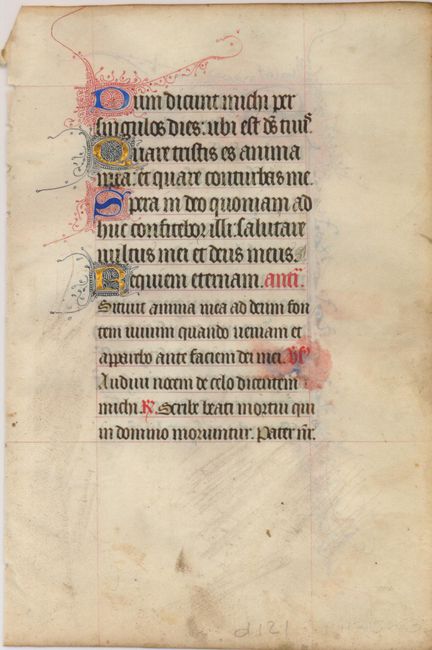 Dum dicunt michi per
singulos dies: ubi est ds tuus.
Quare tristis es anima
mea: et quare conturbas me.
Spera in deo quoniam ad
huc confitebor illi: salutare
vultus mei et deus meus.
Requiem eternam. anta.
Sitivit anima mea ad deum fon
tem vivum quando veniam et
apparebo ante faciem dei mei. Vs.
Audivi vocem de celo dicentem
michi. R. Scribe beati mortui qui
in domino moriuntur. Pater nr.
d 121